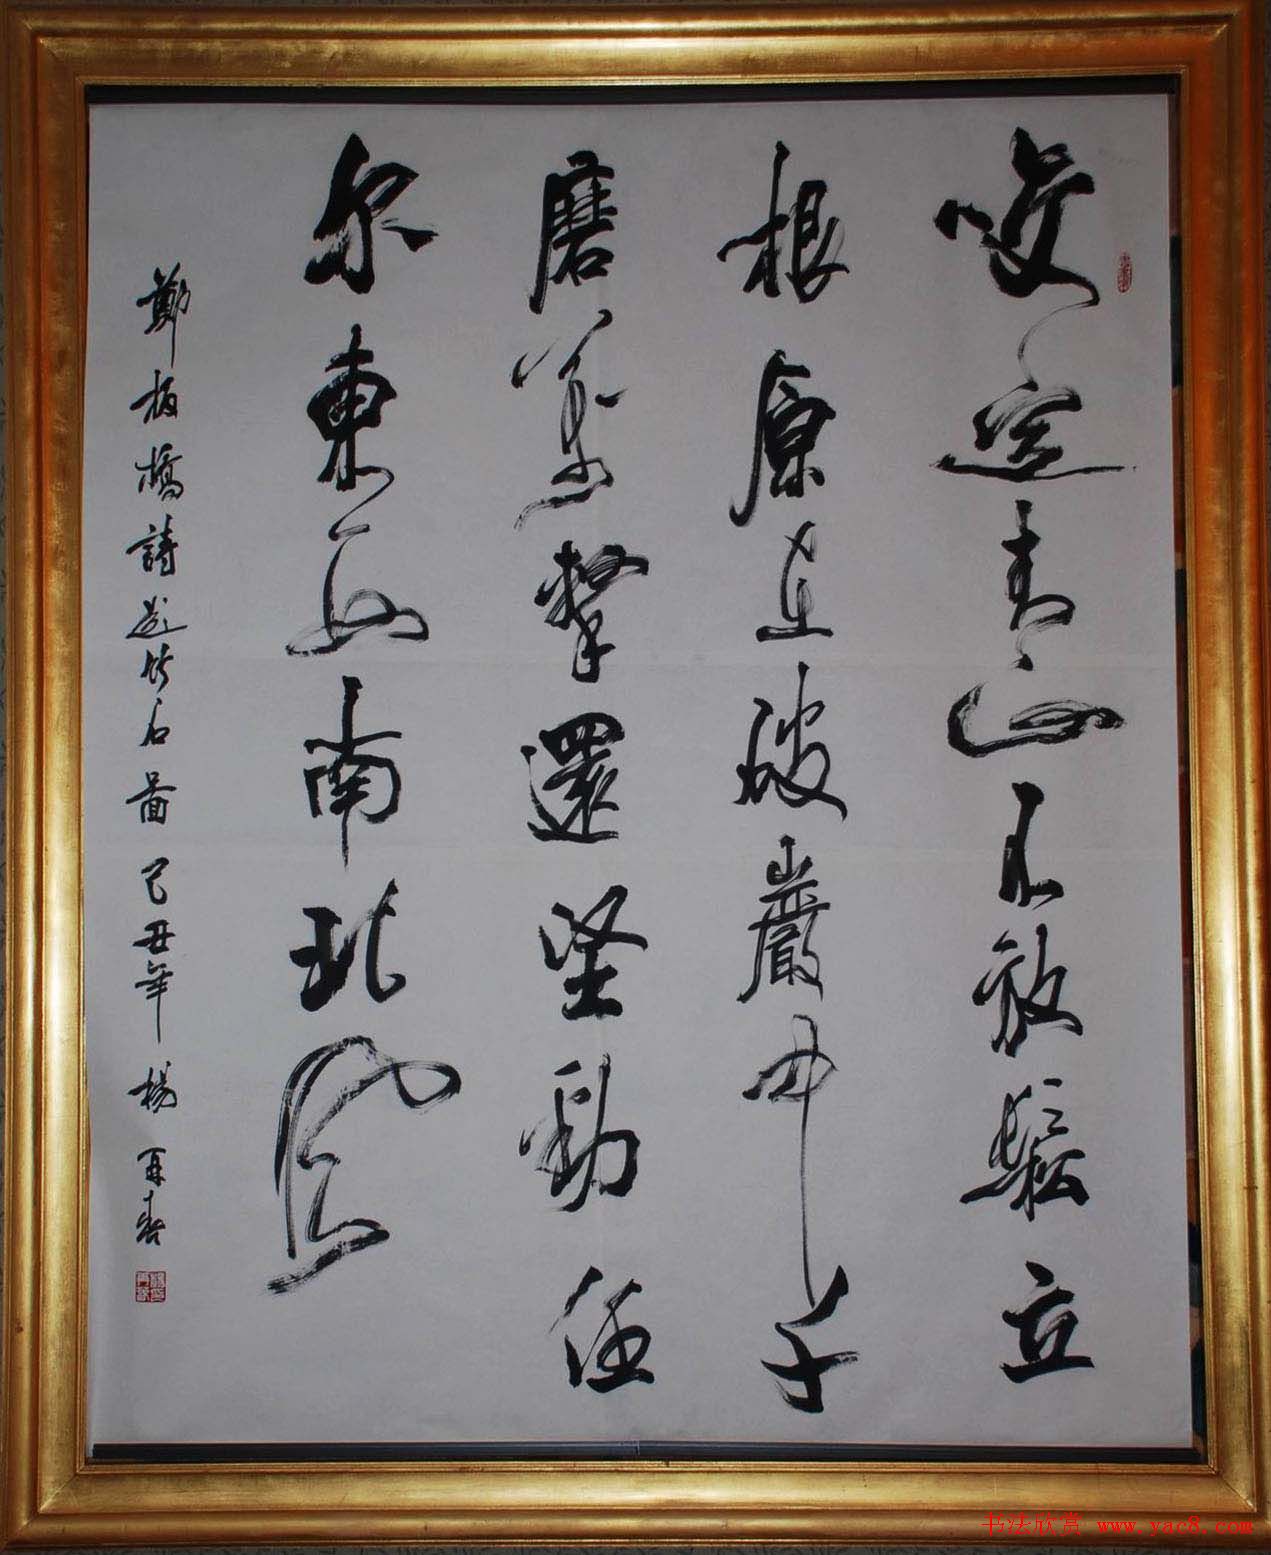 咬定青山不放鬆立
根原在破巖中千
磨萬擊還坚勁任
尔東西南北風
鄭板橋詩題竹石圖 己丑年 楊再春
书法欣赏 www.yac8.com